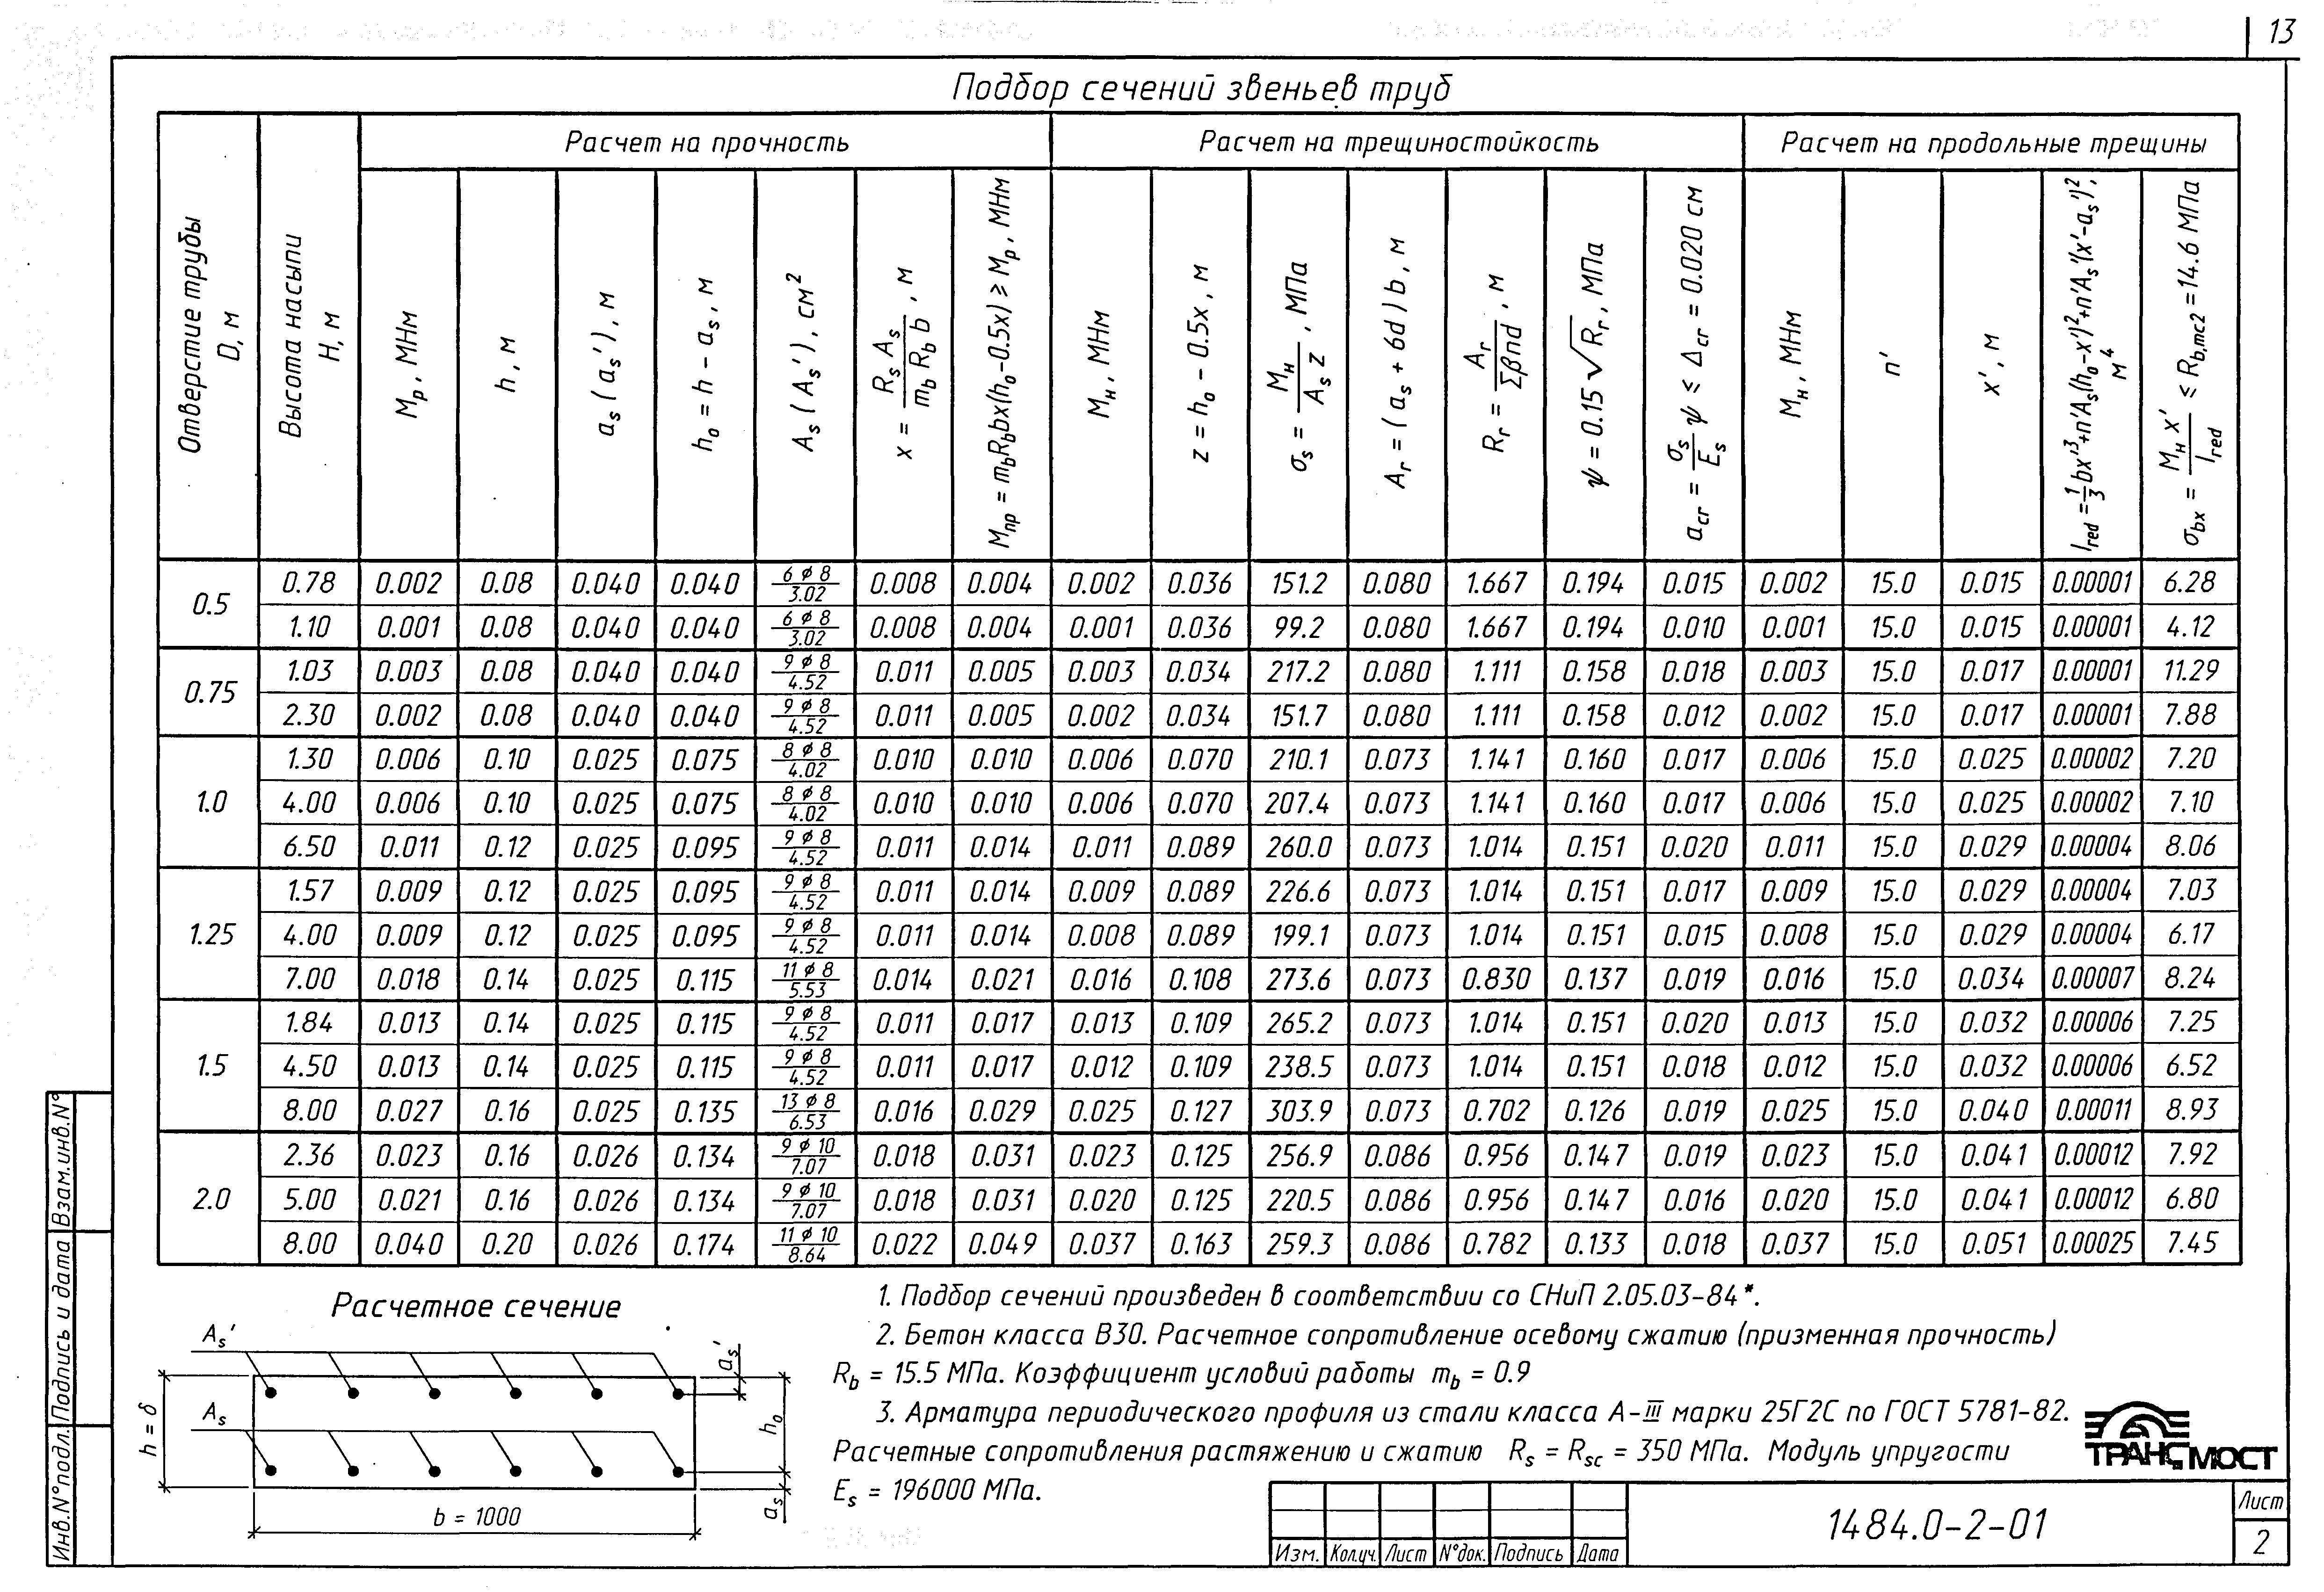 13
Подбор сечений звеньев труб
Отверстие трубы D, м
Высота насыпи H, м
Расчет на прочность
Расчет на трещиностойкость
Расчет на продольные трещины
Mр, МНм
h, м
as (as'), м
h₀ = h - as, м
As (As'), см²
x = Rs As / mb Rb b, м
Mпр = mbRbbx(h₀-0.5x) ≥ Mр, МНм
Mн, МНм
z = h₀ - 0.5x, м
σs = Mн / As z, МПа
Ar = (as + 6d) b, м
Rr = Ar / Σβnd, м
ψ = 0.15 √Rr, МПа
acr = σs / Es ψ ≤ Δcr = 0.020 см
Mн, МНм
n'
x', м
Ired = 1/3 bx'³+n'As(h₀-x')²+n'As'(x'-as')², м⁴
σbx = Mн x' / Ired ≤ Rb,mc2 = 14.6 МПа
0.5
0.78 0.002 0.08 0.040 0.040 6ø8/3.02 0.008 0.004 0.002 0.036 151.2 0.080 1.667 0.194 0.015 0.002 15.0 0.015 0.00001 6.28
1.10 0.001 0.08 0.040 0.040 6ø8/3.02 0.008 0.004 0.001 0.036 99.2 0.080 1.667 0.194 0.010 0.001 15.0 0.015 0.00001 4.12
0.75
1.03 0.003 0.08 0.040 0.040 9ø8/4.52 0.011 0.005 0.003 0.034 217.2 0.080 1.111 0.158 0.018 0.003 15.0 0.017 0.00001 11.29
2.30 0.002 0.08 0.040 0.040 9ø8/4.52 0.011 0.005 0.002 0.034 151.7 0.080 1.111 0.158 0.012 0.002 15.0 0.017 0.00001 7.88
1.0
1.30 0.006 0.10 0.025 0.075 8ø8/4.02 0.010 0.010 0.006 0.070 210.1 0.073 1.141 0.160 0.017 0.006 15.0 0.025 0.00002 7.20
4.00 0.006 0.10 0.025 0.075 8ø8/4.02 0.010 0.010 0.006 0.070 207.4 0.073 1.141 0.160 0.017 0.006 15.0 0.025 0.00002 7.10
6.50 0.011 0.12 0.025 0.095 9ø8/4.52 0.011 0.014 0.011 0.089 260.0 0.073 1.014 0.151 0.020 0.011 15.0 0.029 0.00004 8.06
1.25
1.57 0.009 0.12 0.025 0.095 9ø8/4.52 0.011 0.014 0.009 0.089 226.6 0.073 1.014 0.151 0.017 0.009 15.0 0.029 0.00004 7.03
4.00 0.009 0.12 0.025 0.095 9ø8/4.52 0.011 0.014 0.008 0.089 199.1 0.073 1.014 0.151 0.015 0.008 15.0 0.029 0.00004 6.17
7.00 0.018 0.14 0.025 0.115 11ø8/5.53 0.014 0.021 0.016 0.108 273.6 0.073 0.830 0.137 0.019 0.016 15.0 0.034 0.00007 8.24
1.5
1.84 0.013 0.14 0.025 0.115 9ø8/4.52 0.011 0.017 0.013 0.109 265.2 0.073 1.014 0.151 0.020 0.013 15.0 0.032 0.00006 7.25
4.50 0.013 0.14 0.025 0.115 9ø8/4.52 0.011 0.017 0.012 0.109 238.5 0.073 1.014 0.151 0.018 0.012 15.0 0.032 0.00006 6.52
8.00 0.027 0.16 0.025 0.135 13ø8/6.53 0.016 0.029 0.025 0.127 303.9 0.073 0.702 0.126 0.019 0.025 15.0 0.040 0.00011 8.93
2.0
2.36 0.023 0.16 0.026 0.134 9ø10/7.07 0.018 0.031 0.023 0.125 256.9 0.086 0.956 0.147 0.019 0.023 15.0 0.041 0.00012 7.92
5.00 0.021 0.16 0.026 0.134 9ø10/7.07 0.018 0.031 0.020 0.125 220.5 0.086 0.956 0.147 0.016 0.020 15.0 0.041 0.00012 6.80
8.00 0.040 0.20 0.026 0.174 11ø10/8.64 0.022 0.049 0.037 0.163 259.3 0.086 0.782 0.133 0.018 0.037 15.0 0.051 0.00025 7.45
Расчетное сечение
As'
As
h = δ
as'
h₀
as
b = 1000
1. Подбор сечений произведен в соответствии со СНиП 2.05.03-84*.
2. Бетон класса В30. Расчетное сопротивление осевому сжатию (призменная прочность)
Rb = 15.5 МПа. Коэффициент условий работы mb = 0.9
3. Арматура периодического профиля из стали класса А-III марки 25Г2С по ГОСТ 5781-82.
Расчетные сопротивления растяжению и сжатию Rs = Rsc = 350 МПа. Модуль упругости
Es = 196000 МПа.
ТРАНСМОСТ
Изм. Кол.уч. Лист N°док. Подпись Дата
1484.0-2-01
Лист
2
Инв.N°подл. Подпись и дата Взам.инв.N°